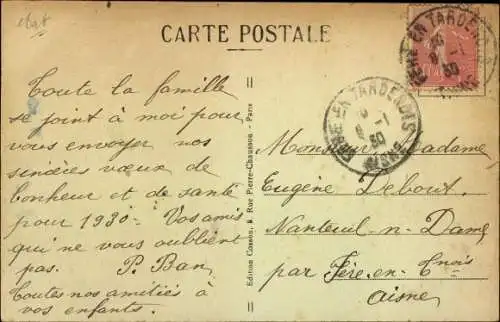 CARTE POSTALE
Toute la famille
se joint à moi pour
vous envoyer nos
sincères vœux de
bonheur et de santé
pour 1930. Vos amis
qui ne vous oublient
pas. P. Ban
Toutes nos amitiés à
vos enfants.
Edition Cosson, 8 Rue Pierre-Chausson - Paris
FÈRE-EN-TARDENOIS
AISNE
30
FÈRE-EN-TARDENOIS
AISNE
30
Monsieur Madame
Eugène Debout
Nanteuil-n-Dame
par Fère-en-Tnois
Aisne